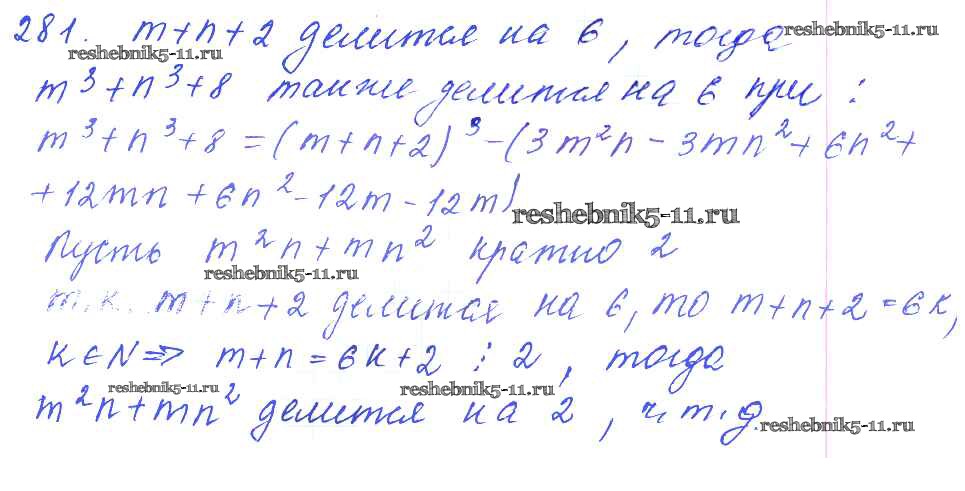 281. m+n+2 делится на 6, тогда
reshebnik5-11.ru reshebnik5-11.ru
m³+n³+8 также делится на 6 при :
m³+n³+8=(m+n+2)³-(3m²n-3mn²+6n²+
+12mn+6n²-12m-12m)
reshebnik5-11.ru
Пусть m²n+mn² кратно 2
reshebnik5-11.ru
т.к. m+n+2 делится на 6, то m+n+2=6k,
k∈N => m+n=6k+2 ⋮ 2, тогда
reshebnik5-11.ru reshebnik5-11.ru
m²n+mn² делится на 2, ч.т.д.
reshebnik5-11.ru